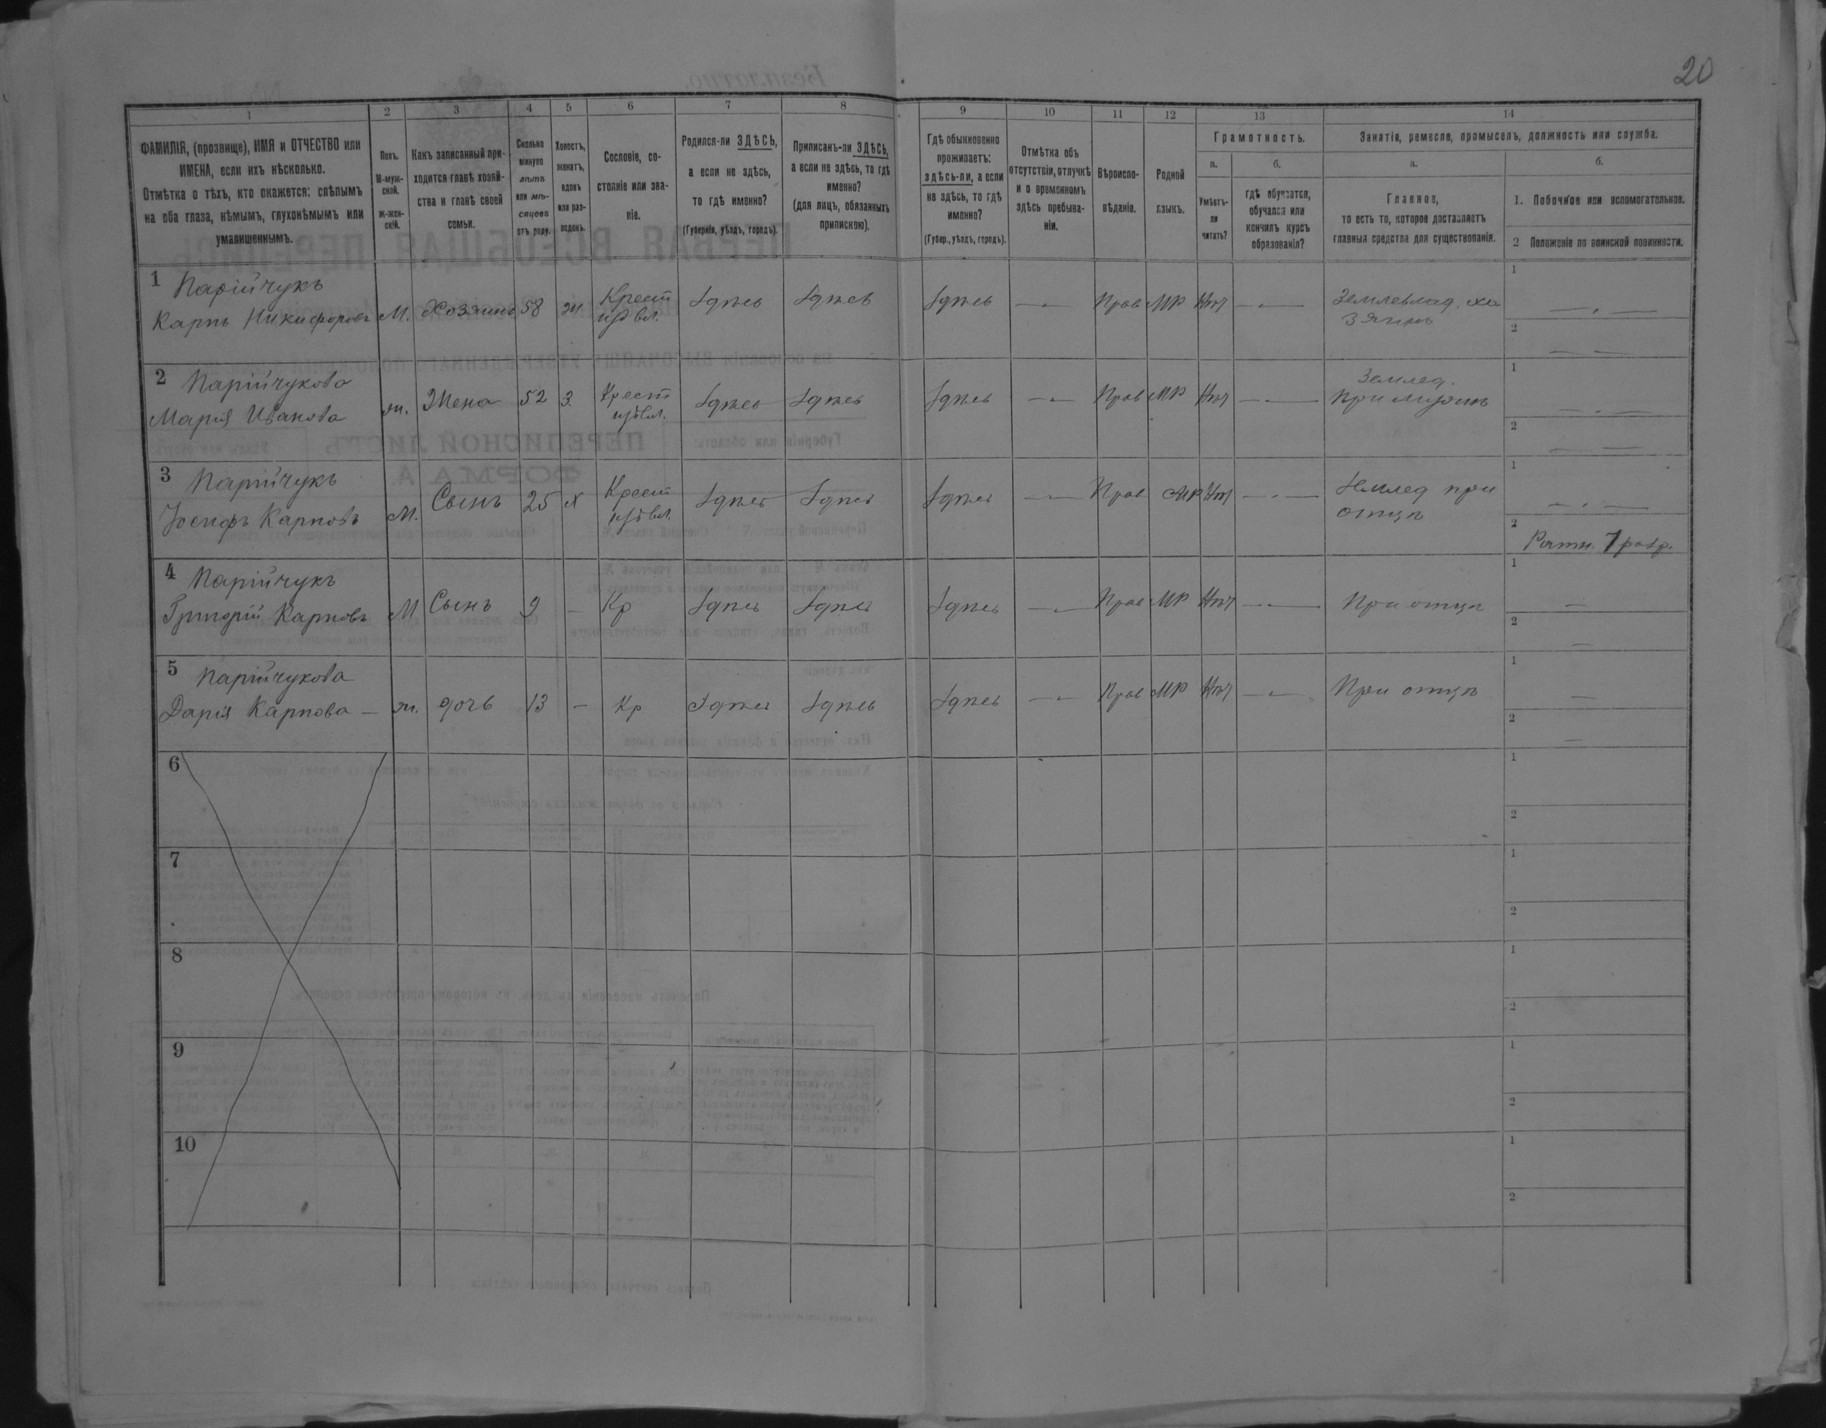 20
1 2 3 4 5 6 7 8 9 10 11 12 13 14
ФАМИЛІЯ, (прозвище), ИМЯ и ОТЧЕСТВО или
ИМЕНА, если ихъ нѣсколько.
Отмѣтка о тѣхъ, кто окажется: слѣпымъ
на оба глаза, нѣмымъ, глухонѣмымъ или
умалишеннымъ.
Полъ.
М-муж-
ской.
Ж-жен-
скій.
Какъ записанный при-
ходится главѣ хозяй-
ства и главѣ своей
семьи.
Сколько
минуло
лѣтъ
или мѣ-
сяцевъ
отъ роду.
Холостъ,
женатъ,
вдовъ
или раз-
веденъ.
Сословіе, со-
стояніе или зва-
ніе.
Родился-ли ЗДѢСЬ,
а если не здѣсь,
то гдѣ именно?
(Губернія, уѣздъ, городъ).
Приписанъ-ли ЗДѢСЬ,
а если не здѣсь, то гдѣ
именно?
(для лицъ, обязанныхъ
припискою).
Гдѣ обыкновенно
проживаетъ:
здѣсь-ли, а если
не здѣсь, то гдѣ
именно?
(Губер., уѣздъ, городъ).
Отмѣтка объ
отсутствіи, отлучкѣ
и о временномъ
здѣсь пребыва-
ніи.
Вѣроиспо-
вѣданіе.
Родной
языкъ.
Грамотность.
а.
Умѣетъ-
ли
читать?
б.
гдѣ обучается,
обучался или
кончилъ курсъ
образованія?
Занятіе, ремесло, промыселъ, должность или служба.
а.
Главное,
то есть то, которое доставляетъ
главныя средства для существованія.
б.
1. Побочное или вспомогательное.
2 Положеніе по воинской повинности.
1 Парійчукъ
Карпъ Никифоровъ М. Хозяинъ 58 ж Крест Здѣсь Здѣсь Здѣсь — Прав МР Нѣт — Землевлад. хо
зяинъ
1
2
2 Парійчукова
Марія Иванова ж. Жена 52 З Крест Здѣсь Здѣсь Здѣсь — Прав МР Нѣт — Землед.
При мужѣ
1
2
3 Парійчукъ
Іосифъ Карповъ М. Сынъ 25 х Крест Здѣсь Здѣсь Здѣсь — Прав МР Нѣт — Землед при
отцѣ
1
2 Ратн. 1 разр.
4 Парійчукъ
Григорій Карповъ М Сынъ 9 — Кр Здѣсь Здѣсь Здѣсь — Прав МР Нѣт — При отцѣ
1 —
2 —
5 Парійчукова
Дарія Карпова — ж. дочь 13 — Кр Здѣсь Здѣсь Здѣсь — Прав МР Нѣт — При отцѣ
1 —
2 —
6
1
2
7
1
2
8
1
2
9
1
2
10
1
2